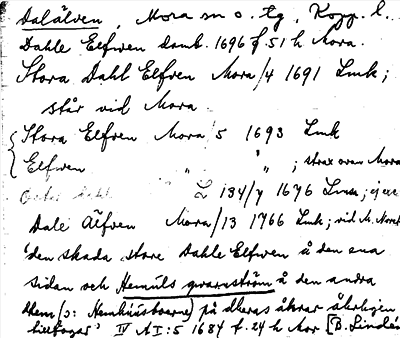 Dalälven, Mora sn o. tg, Kopp. l.
Dahle Elfwen Domb. 1696 f. 51 h Mora.
Stora Dahl Elfven Mora/4 1691 Lmk;
står vid Mora
Stora Elfven Mora/5 1693 Lmk
Elfwen " " ; strax ovan Mora
Z 134/7 1676 Lmk; ej
Dale Älfven Mora/13 1766 Lmk; vid M. Noret
"den skada store Dahle Elfwen å den ena
sidan och Hemuls qvarnström å den andra
them (ɔ: ) på theras åkrar åhrligen
tillfogar" IV A I:5 1684 f. 24 h Mor [B. Lindén